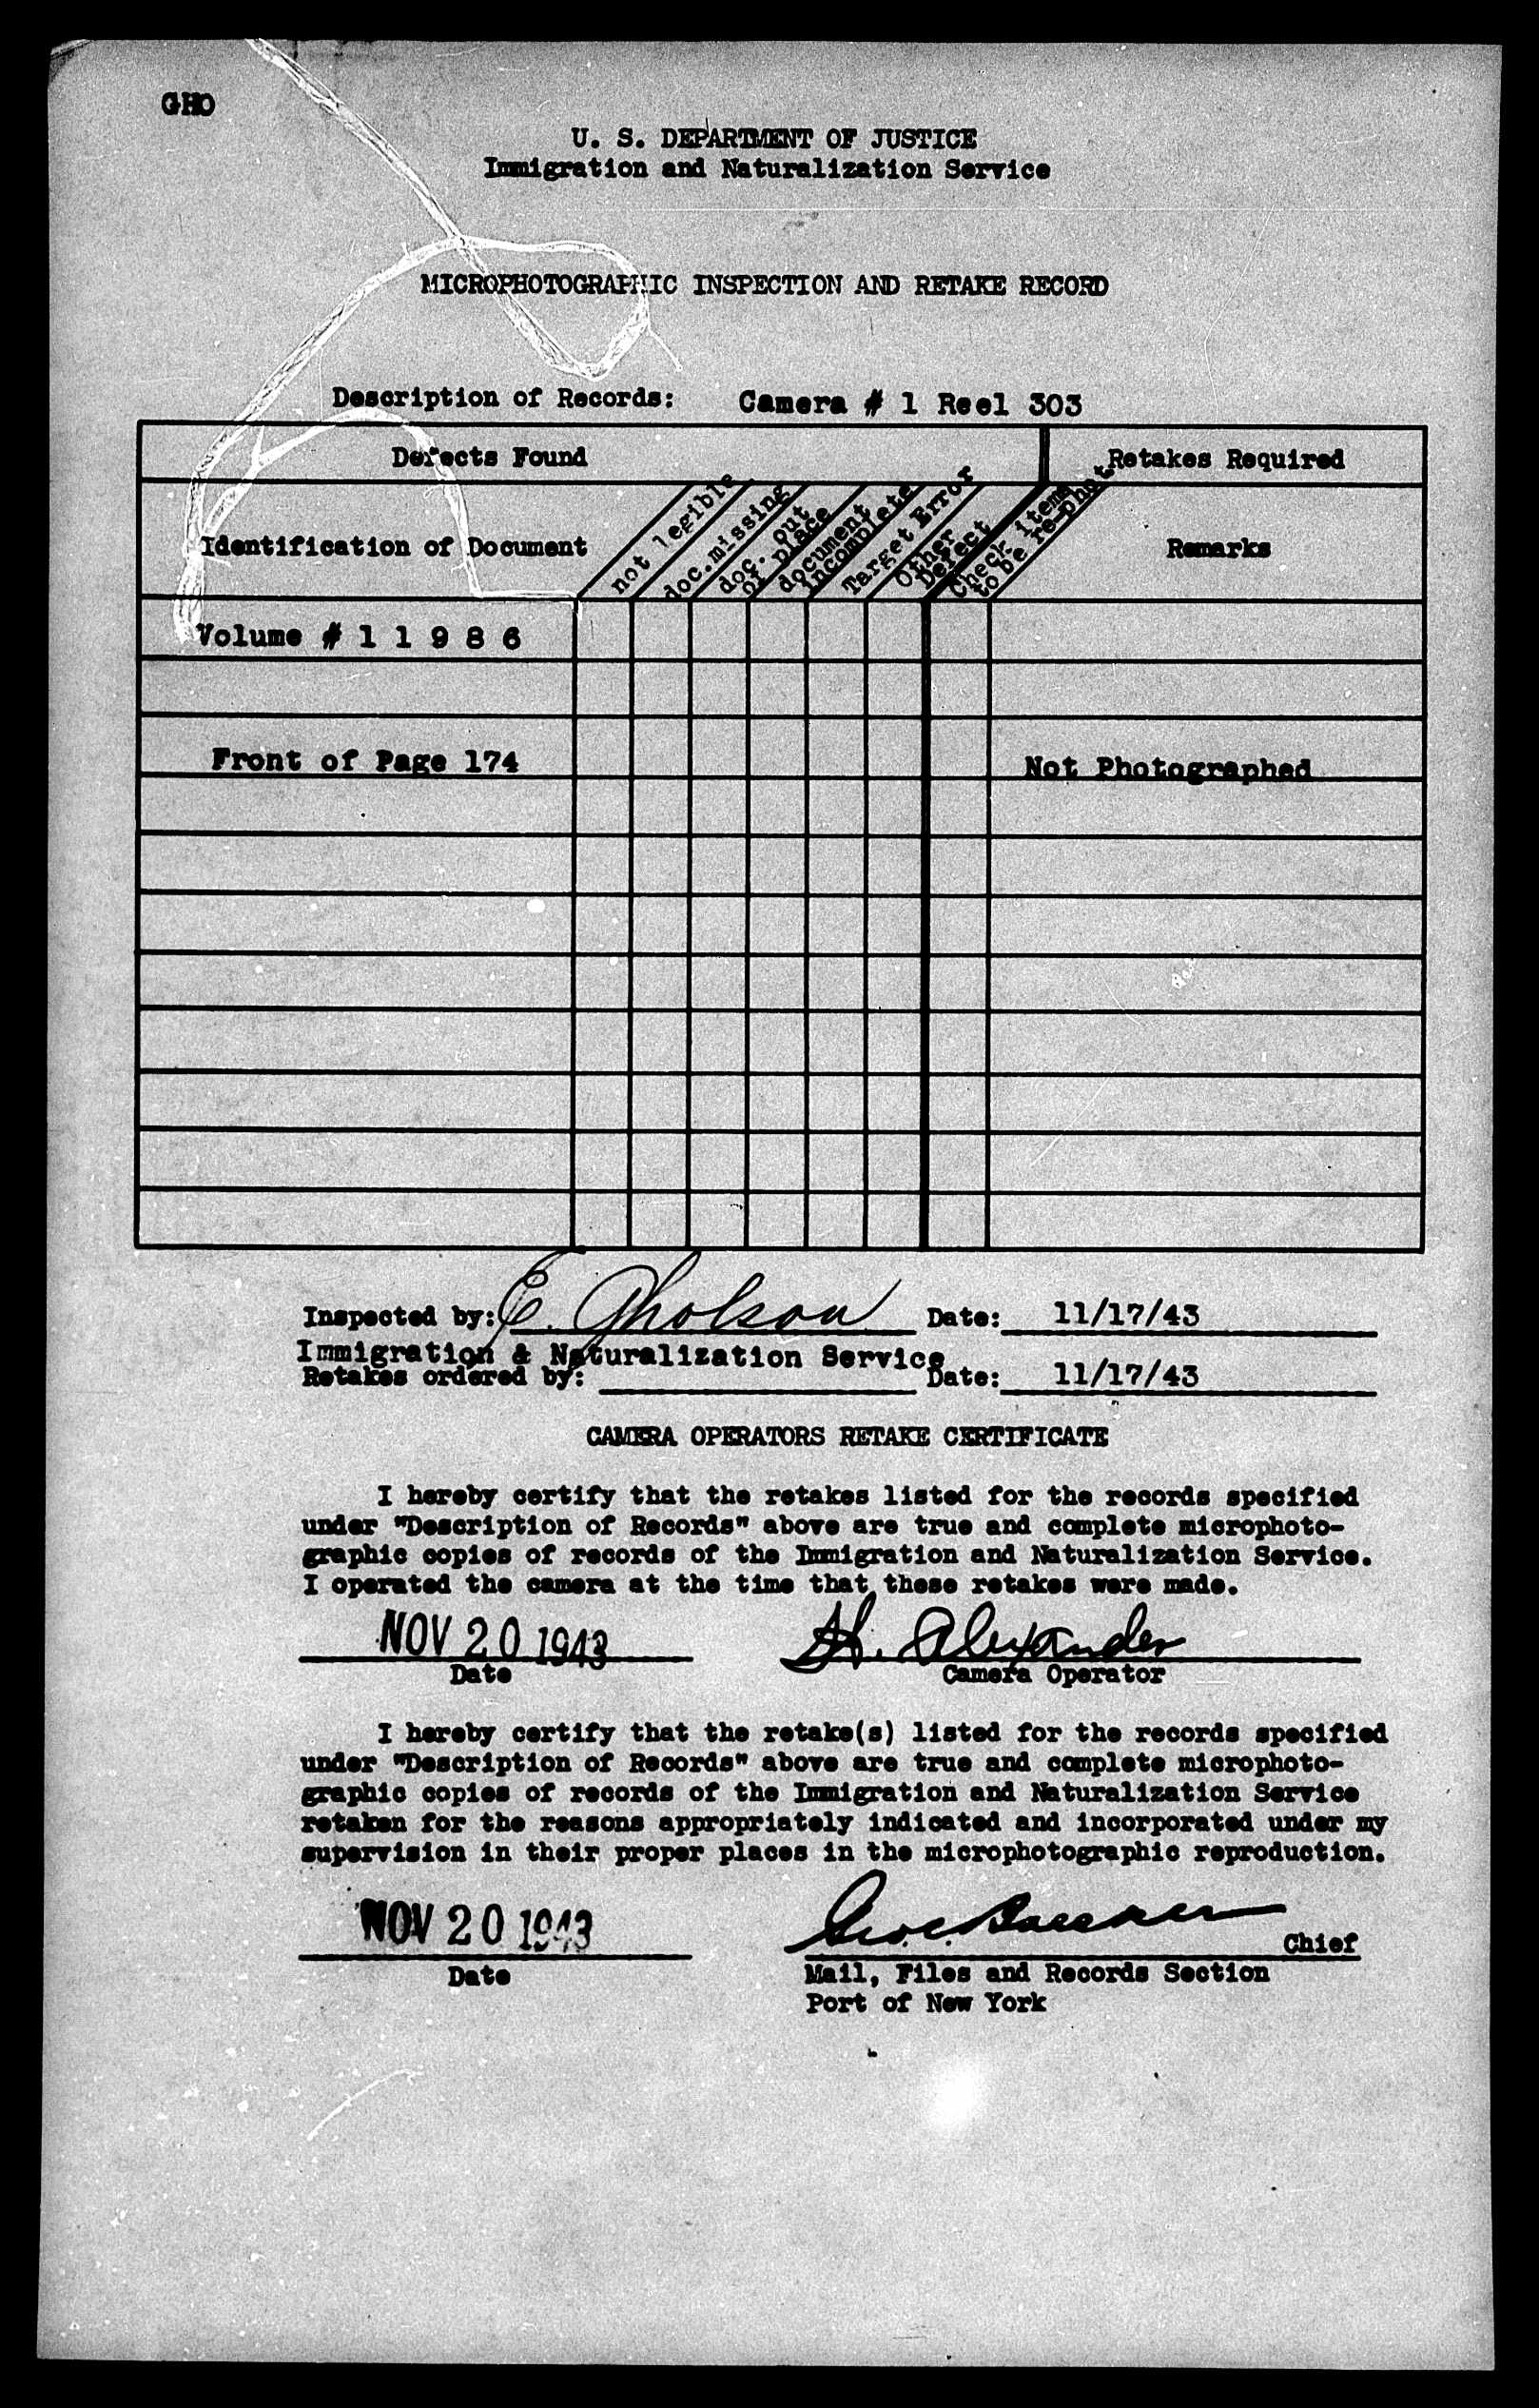 GHO
U. S. DEPARTMENT OF JUSTICE
Immigration and Naturalization Service
MICROPHOTOGRAPHIC INSPECTION AND RETAKE RECORD
Description of Records: Camera # 1 Reel 303
Defects Found
Retakes Required
Identification of Document
not legible
doc. missing
doc. out
of place
document
incomplete
Target Error
Other
Defect
Check items
to be re-phot
Remarks
Volume # 1 1 9 8 6
Front of Page 174
Not Photographed
Inspected by: E. Gholson Date: 11/17/43
Immigration & Naturalization Service
Retakes ordered by: Date: 11/17/43
CAMERA OPERATORS RETAKE CERTIFICATE
I hereby certify that the retakes listed for the records specified
under "Description of Records" above are true and complete microphoto-
graphic copies of records of the Immigration and Naturalization Service.
I operated the camera at the time that these retakes were made.
NOV 20 1943 H. Alexander
Date Camera Operator
I hereby certify that the retake(s) listed for the records specified
under "Description of Records" above are true and complete microphoto-
graphic copies of records of the Immigration and Naturalization Service
retaken for the reasons appropriately indicated and incorporated under my
supervision in their proper places in the microphotographic reproduction.
NOV 20 1943 Chief
Date Mail, Files and Records Section
Port of New York